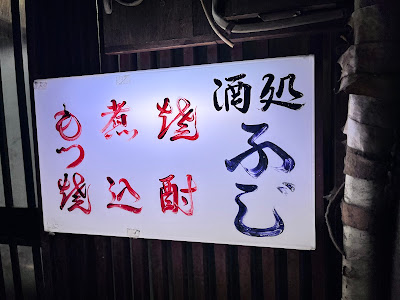 酒処
ふじ
焼酎
煮込
もつ焼